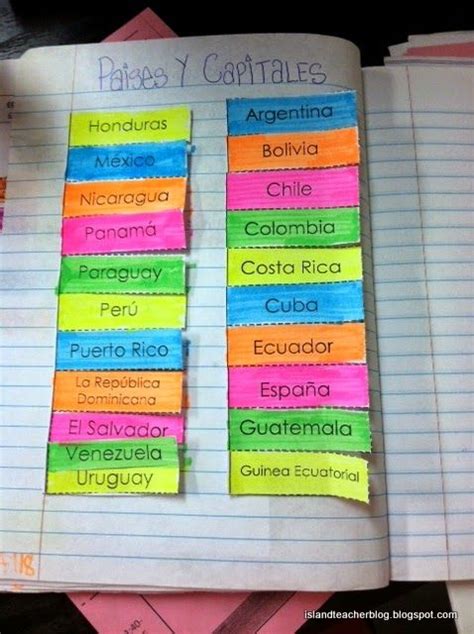 Paises Y Capitales
Honduras
México
Nicaragua
Panamá
Paraguay
Perú
Puerto Rico
La República
Dominicana
El Salvador
Venezuela
Uruguay
Argentina
Bolivia
Chile
Colombia
Costa Rica
Cuba
Ecuador
España
Guatemala
Guinea Ecuatorial
islandteacherblog.blogspot.com